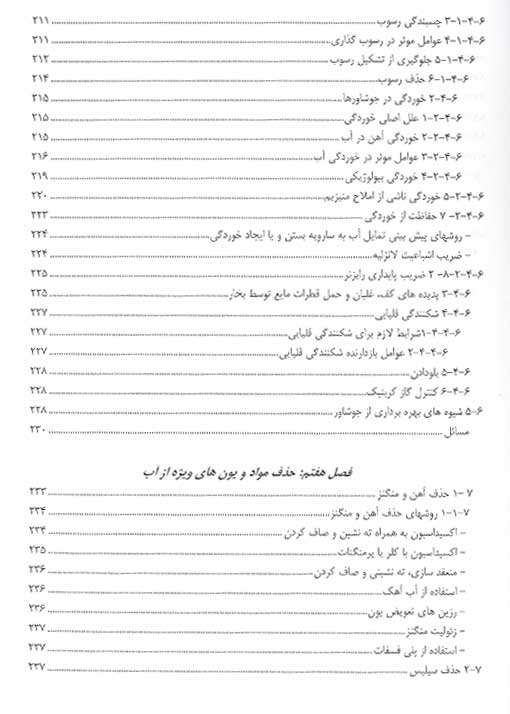 ۳-۱-۴-۶ چسبندگی رسوب ۲۱۱
۴-۱-۴-۶ عوامل موثر در رسوب گذاری ۲۱۱
۵-۱-۴-۶ جلوگیری از تشکیل رسوب ۲۱۲
۶-۱-۴-۶ حذف رسوب ۲۱۴
۲-۴-۶ خوردگی در جوشاورها ۲۱۵
۱-۲-۴-۶ علل اصلی خوردگی ۲۱۵
۲-۲-۴-۶ خوردگی آهن در آب ۲۱۵
۳-۲-۴-۶ عوامل موثر در خوردگی آب ۲۱۶
۴-۲-۴-۶ خوردگی بیولوژیکی ۲۱۹
۵-۲-۴-۶ خوردگی ناشی از املاح منیزیم ۲۲۰
۷ -۲-۴-۶ حفاظت از خوردگی ۲۲۳
- روشهای پیش بینی تمایل آب به سارویه بستن و یا ایجاد خوردگی ۲۲۴
- ضریب اشباعیت لانژلیه ۲۲۴
۲ -۸-۲-۴-۶ ضریب پایداری رایزنر ۲۲۵
۳-۴-۶ پدیده های کف، غلیان و حمل قطرات مایع توسط بخار ۲۳۵
۴-۴-۶ شکنندگی قلیایی ۲۲۷
۱-۴-۴-۶شرایط لازم برای شکنندگی قلیایی ۲۲۷
۲-۴-۴-۶ عوامل بازدارنده شکنندگی قلیایی ۲۲۷
۵-۴-۶ بلودادن ۲۲۸
۶-۴-۶ کنترل گاز کربنیک ۲۲۸
۵-۶ شیوه های بهره برداری از جوشاور ۲۲۸
مسائل ۲۳۰
فصل هفتم: حذف مواد و یون های ویژه از آب
۱-۷ حذف آهن و منگنز ۲۳۳
۱-۱-۷ روشهای حذف آهن و منگنز ۲۳۴
- اکسیداسیون به همراه ته نشین و صاف کردن ۲۳۴
- اکسیداسیون با کلر یا پرمنگنات ۲۳۵
- منعقد سازی، ته نشینی و صاف کردن ۲۳۶
- استفاده از آب آهک ۲۳۶
- رزین های تعویض یون ۲۳۶
- زئولیت منگنز ۲۳۷
- استفاده از پلی فسفات ۲۳۷
۲-۷ حذف سیلیس ۲۳۷